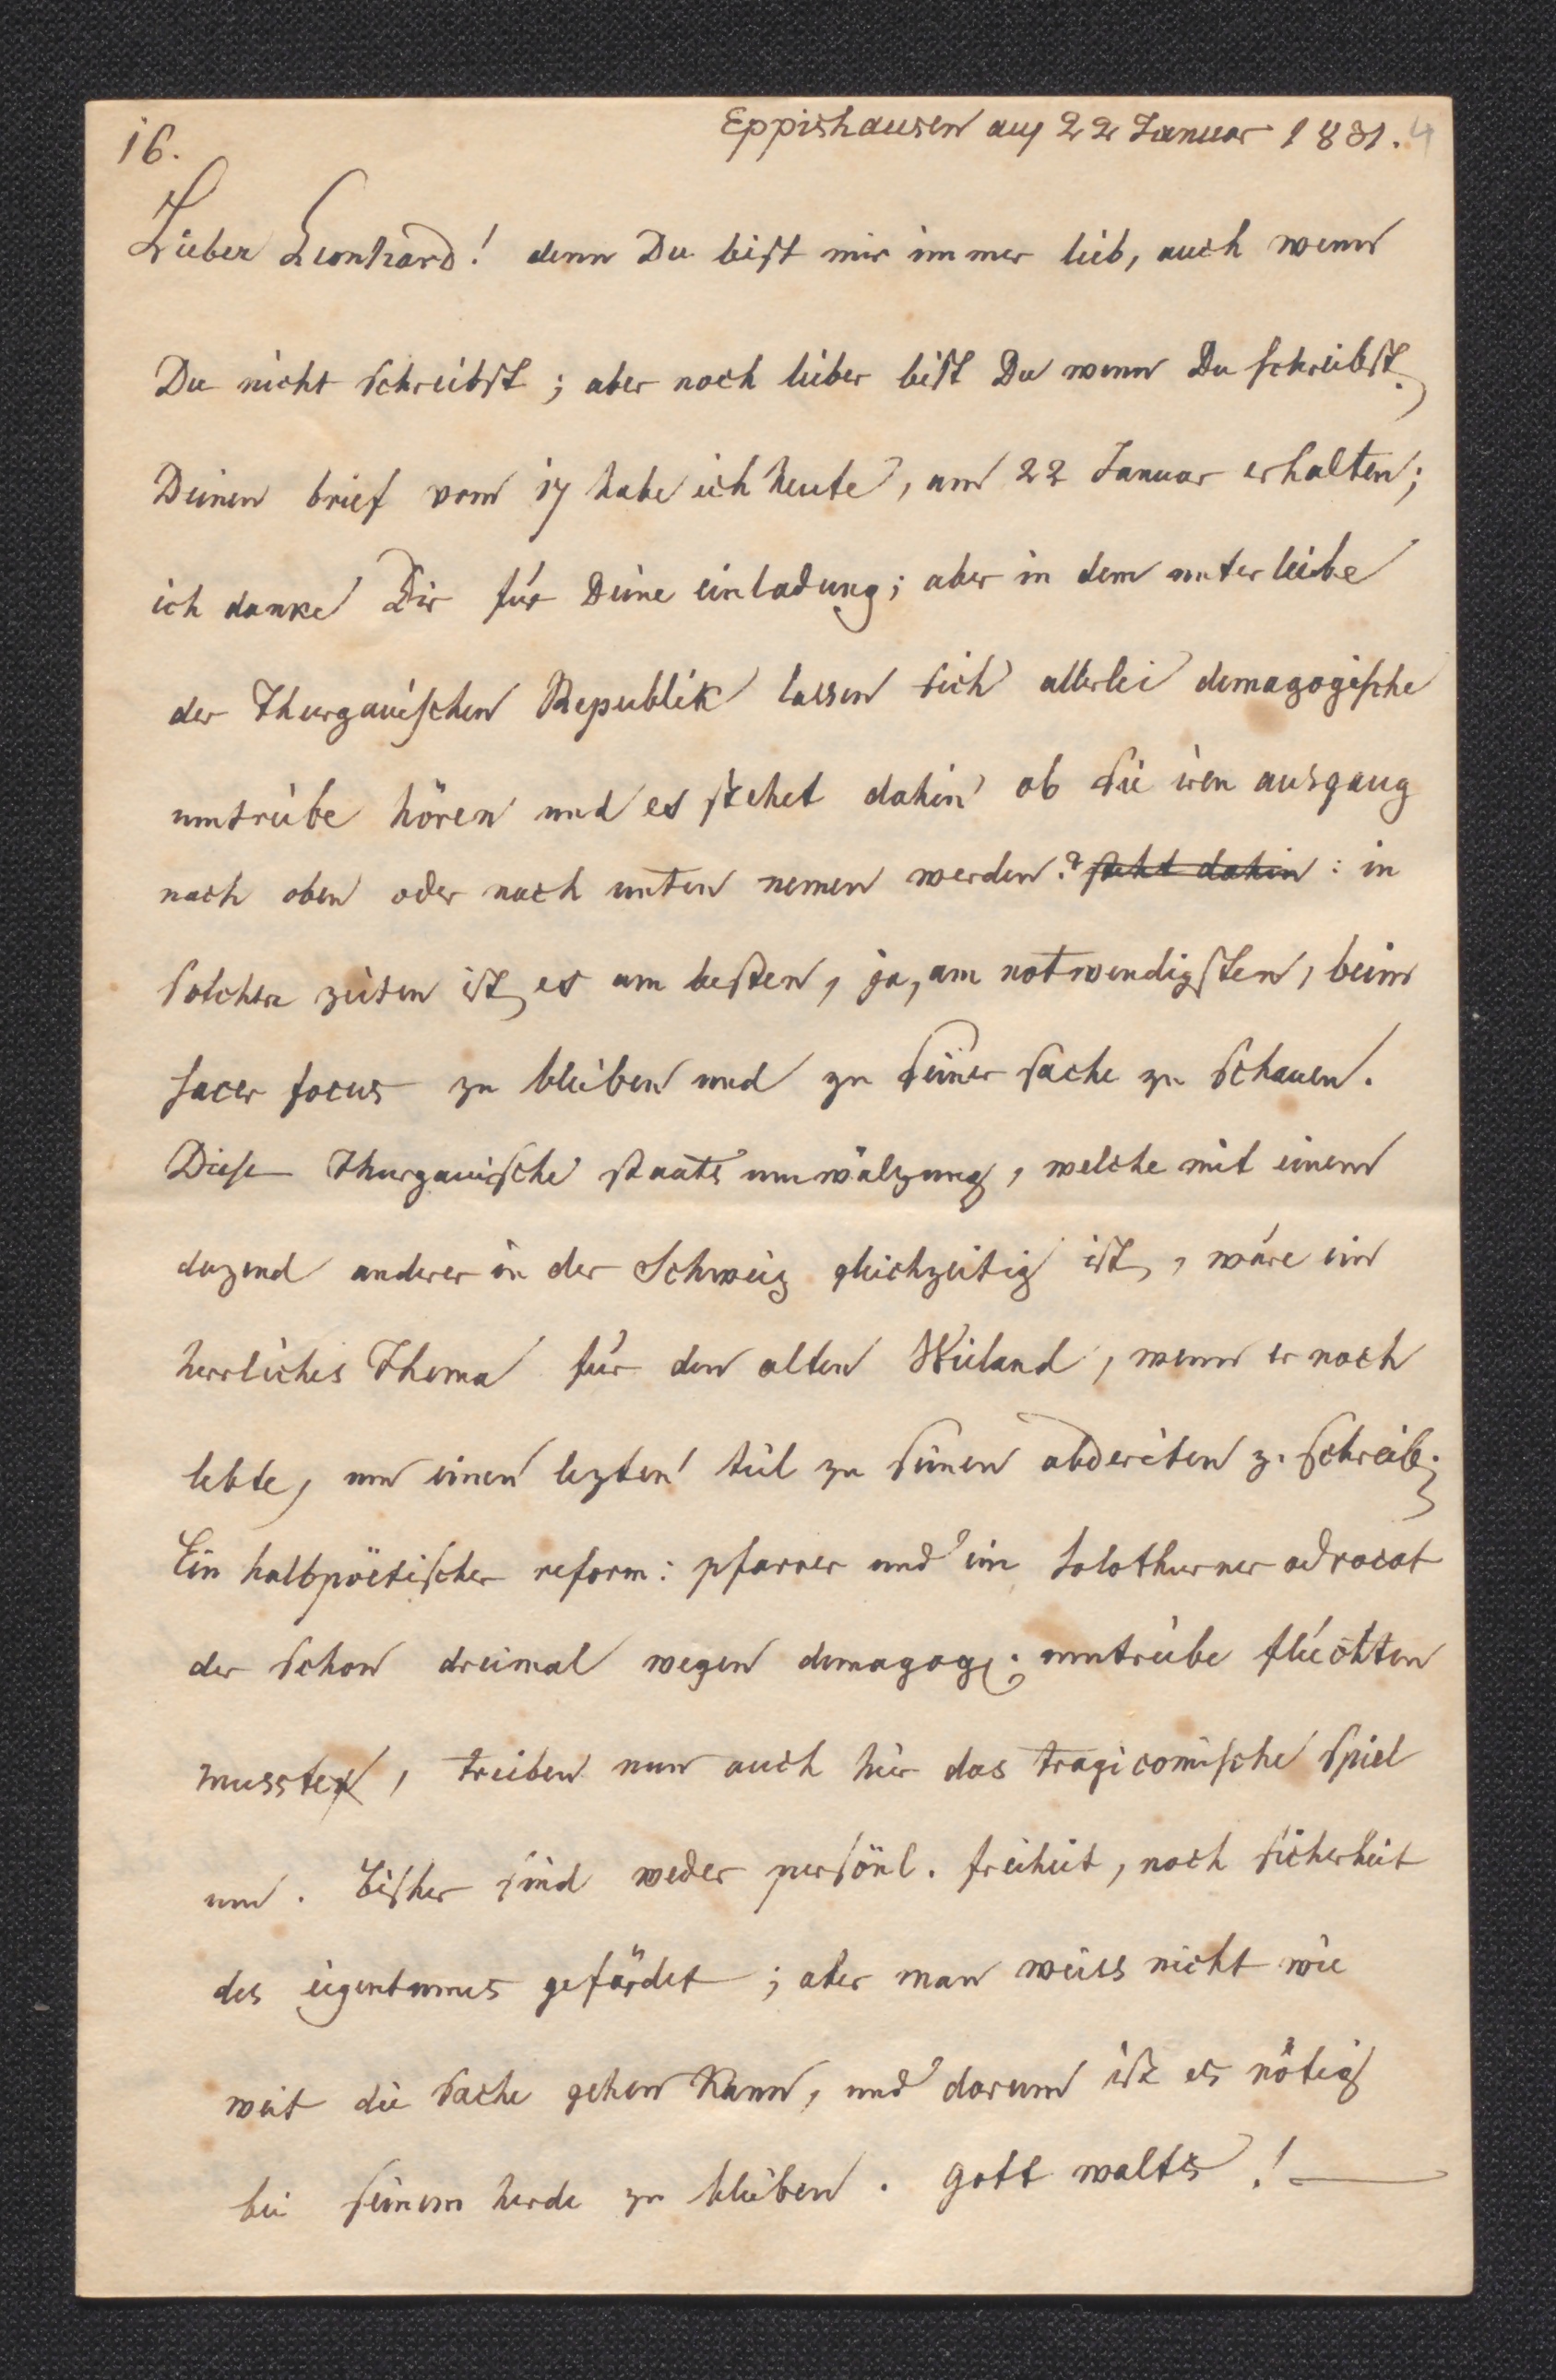 16.
Eppishausen auf 22 Januar 1831. 4
Lieber Leonhard! denn Du bist mir immer lieb, auch wenn
Du nicht schreibst; aber noch lieber bist Du wenn Du schreibst.
Deinen brief vom 17 habe ich heute, am 22 Januar erhalten;
ich danke Dir für Deine einladung; aber in dem unterleibe
der Thurgauischen Republik lassen sich allerlei demagogische
umtriebe hören und es stehet dahin ob sie iren ausgang
nach oben oder nach unten nemen werden? steht dahin : in
solchen zeiten ist es am besten, ja, am notwendigsten, beim
sacer focus zu bleiben und zu seiner sache zu schauen.
Diese Thurgauische staatsumwälzung, welche mit einem
duzend anderer in der Schweiz gleichzeitig ist, wäre ein
herrliches Thema für den alten Wieland, wenn er noch
lebte, um einen lezten teil zu seinen abderiten z. schreib.
Ein halbpöetischer reform: pfarrer und ein Solothurner advocat
der schon dreimal wegen demagog: umtriebe flüchten
musste, treiben nun auch hier das tragicomische spiel
um. bisher sind weder persönl. freiheit, noch sicherheit
des eigentumes gefärdet; aber man weiss nicht wie
weit die sache gehen kann, und darum ist es nötig
bei seinem herde zu bleiben. gott walts! —